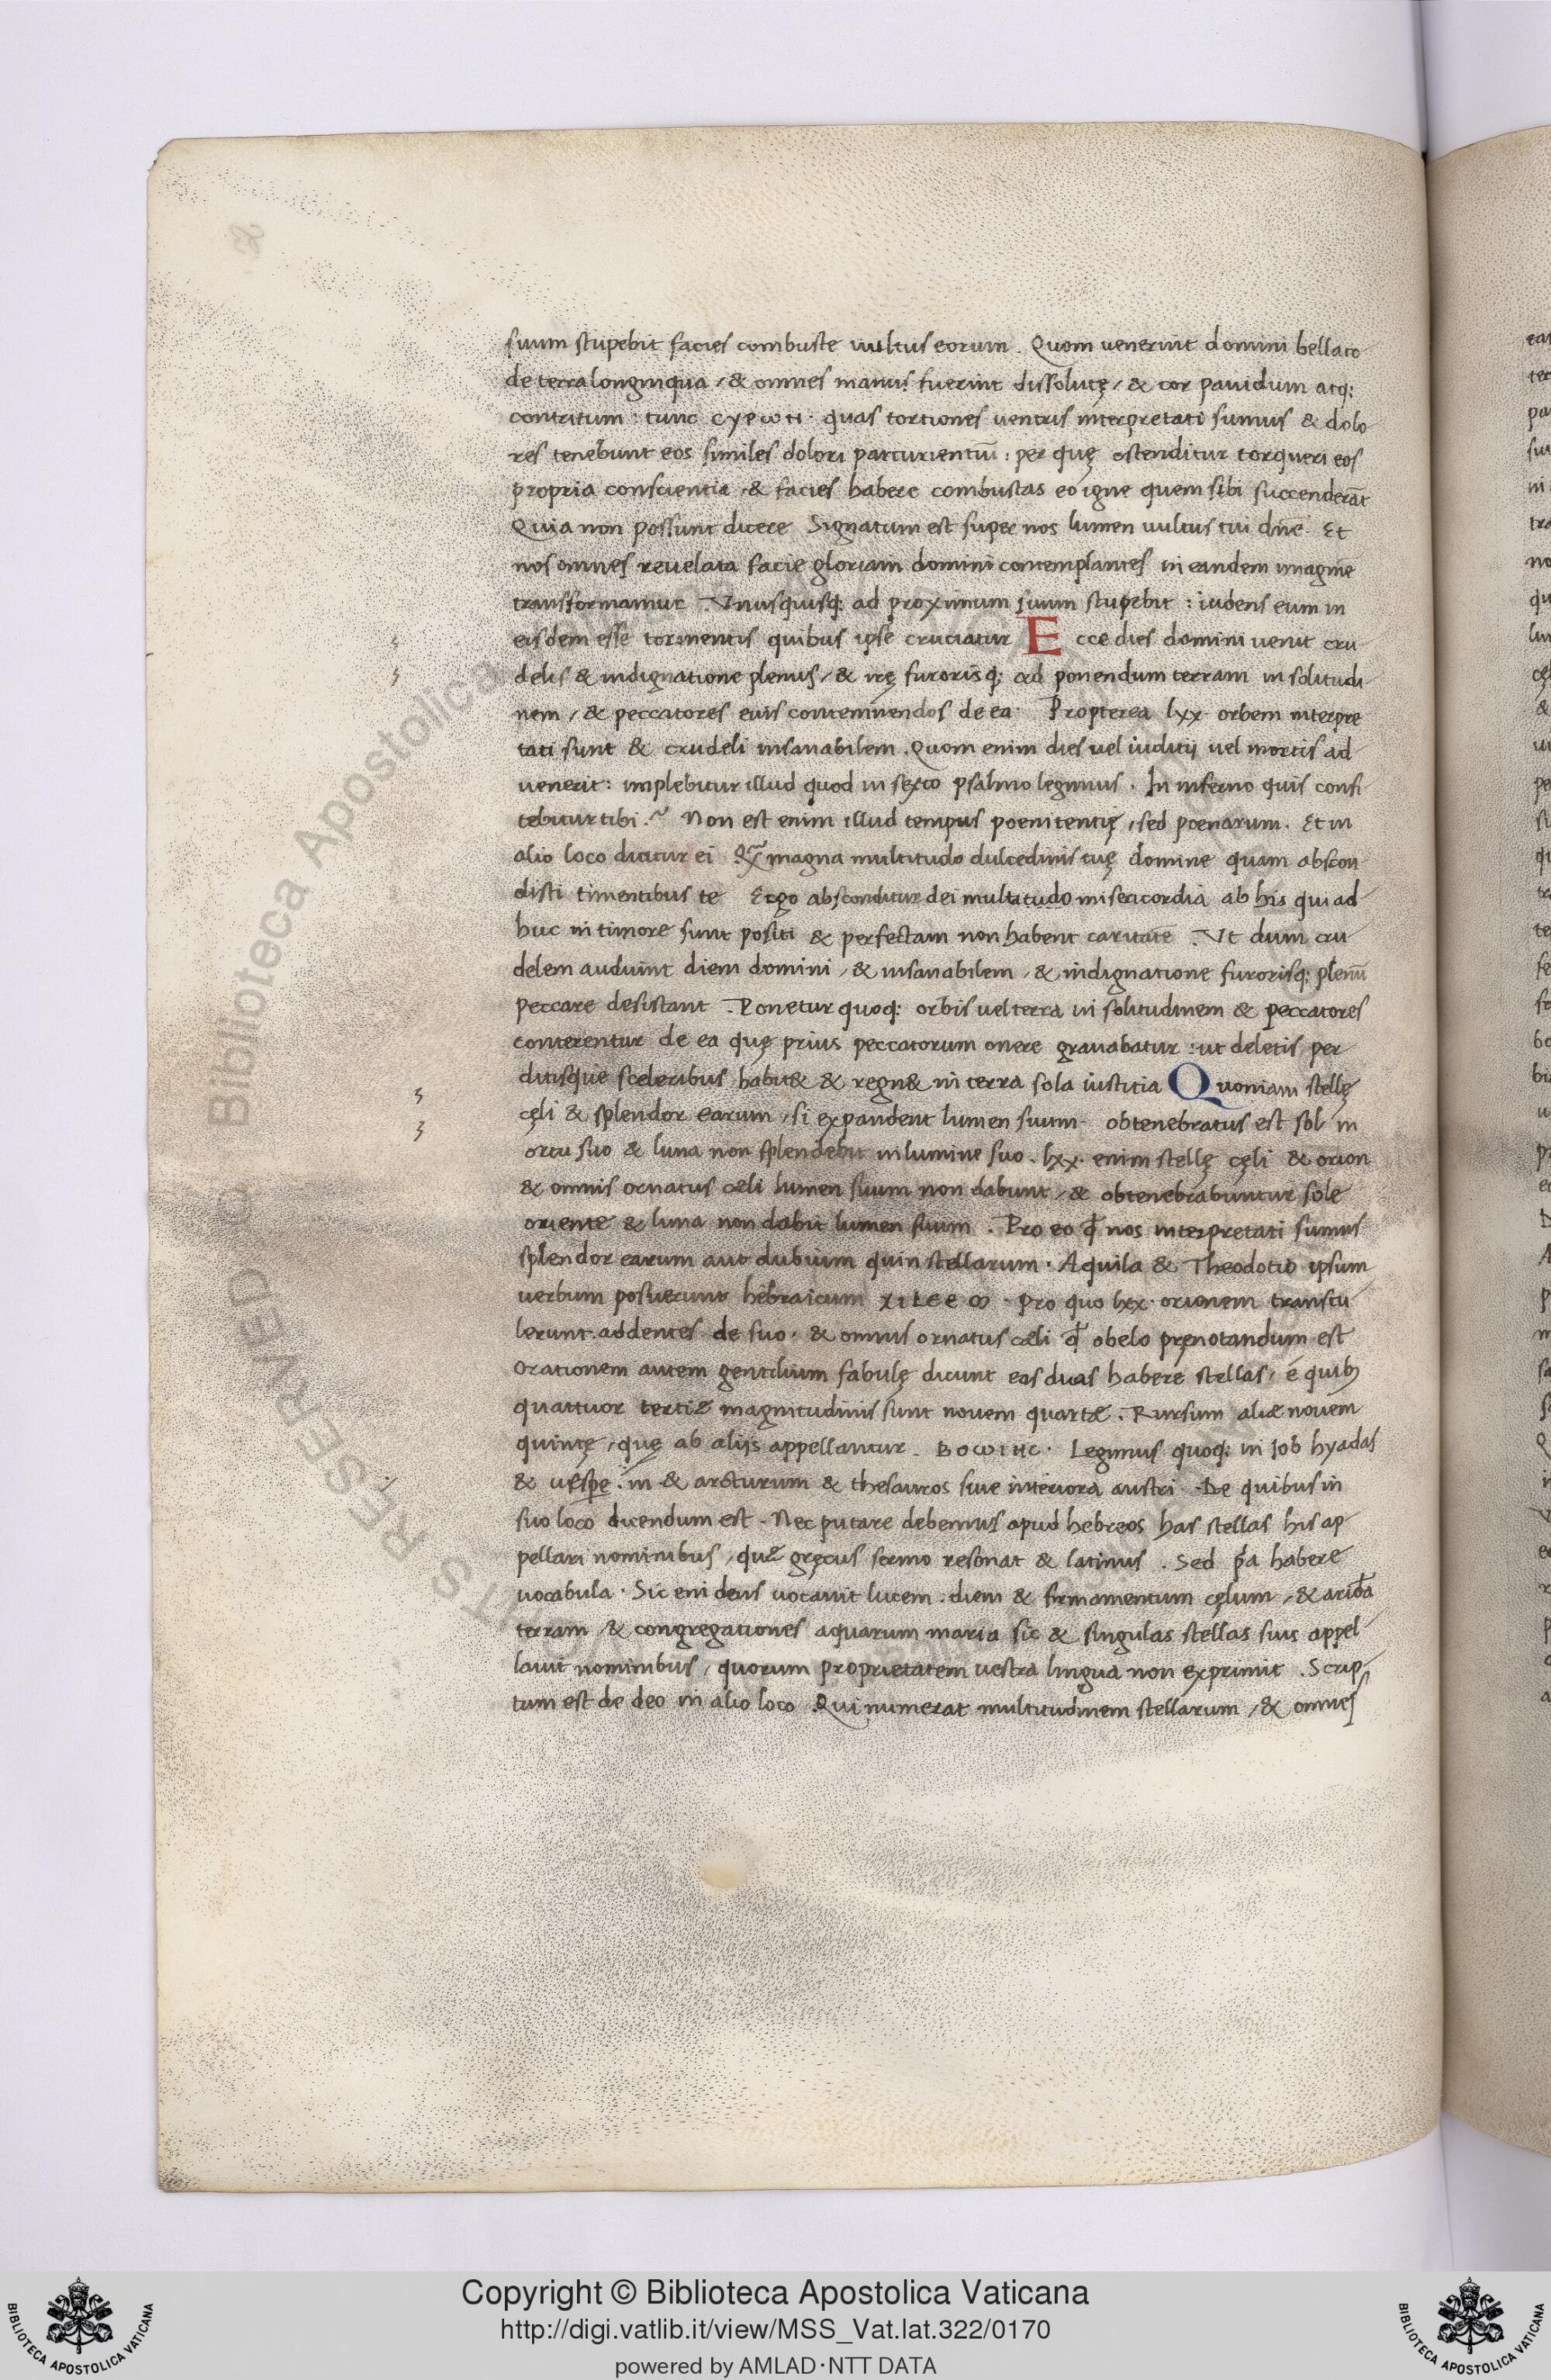 suum stupebit facies combuste uultus eorum. Quom uenerint domini bellato
de terra longinqua, & omnes manus fuerint dissolutę, & cor pauidum atq;
contritum: tunc cypωN· quas tortiones uentris interpretati sumus & dolo
res tenebunt eos similes dolori parturientiũ: per quę ostenditur torqueri eos
propria conscientia, & facies habere combustas eo igne quem sibi succenderãt
Quia non possunt dicere Signatum est super nos lumen uultus tui dn̄e. Et
nos omnes reuelata facie gloriam domini contemplantes in eandem imaginē
transformamur. Vnusquisq; ad proximum suum stupebit: iudens eum in
eisdem esse tormentis quibus ipse cruciatur Ecce dies domini uenit cru
delis & indignatione plenus, & irę furorisq; ad ponendum terram in solitudi
nem, & peccatores euis contemnendos de ea· Propterea lxx· orbem interpre
tati sunt & crudeli insanabilem. Quom enim dies uel iuditij uel mortis ad
uenerit: implebitur illud quod in sexto psalmo legimus. In inferno quis confi
tebitur tibi.~ Non est enim illud tempus poenitentię, sed poenarum. Et in
alio loco dicitur ei magna multitudo dulcedinis tuę domine quam abscon
disti timentibus te Ergo absconditur dei multitudo misericordia ab his qui ad
huc in timore sunt positi & perfectam non habent caritatē. Vt dum cru
delem audiunt diem domini, & insanabilem, & indignatione furorisq; plenũ
peccare desistant. Ponetur quoq; orbis uel terra in solitudinem & peccatores
conterentur de ea quę prius peccatorum onere grauabatur: ut deletis per
ditisque sceleribus habit& & regn& in terra sola iustitia Quoniam stellę
cęli & splendor earum, si expandent lumen suum· obtenebratus est sol in
ortu suo & luna non splendebit in lumine suo. lxx· enim stellę cęli & orion
& omnis ornatus cæli lumen suum non dabunt, & obtenebrabuntur sole
oriente & luna non dabit lumen suum. Pro eo qđ nos interpretati sumus
splendor earum aut dubium quin stellarum. Aquila & Theodotio ipsum
uerbum posuerunt hebraicum XILEE ꝏ. Pro quo lxx· orionem transtu
lerunt addentes de suo· & omnis ornatus cæli qđ obelo pręnotandum est
Orationem autem gentilium fabulę dicunt eas duas habere stellas, é quib;
quattuor tertiæ magnitudinis sunt nouem quartæ. Rursum aliæ nouem
quintę, quę ab alijs appellantur. BOωTHC· Legimus quoq; in Job hyadas
& uesp̱e. in & arcturum & thesauros siue interiora austri. De quibus in
suo loco dicendum est. Nec putare debemus apud hebreos has stellas his ap
pellari nominibus, quæ gręcus sermo resonat & latinus. Sed habere
uocabula. Sic eni deus uocauit lucem. diem & firmamentum cęlum, & aridā
terram, & congregationes aquarum maria sic & singulas stellas suis appel
lauit nominibus, quorum proprietatem uestra lingua non exprimit. Scrip
tum est de deo in alio loco Qui numerat multitudinem stellarum, & omnes
Copyright © Biblioteca Apostolica Vaticana
http://digi.vatlib.it/view/MSS_Vat.lat.322/0170
powered by AMLAD·NTT DATA